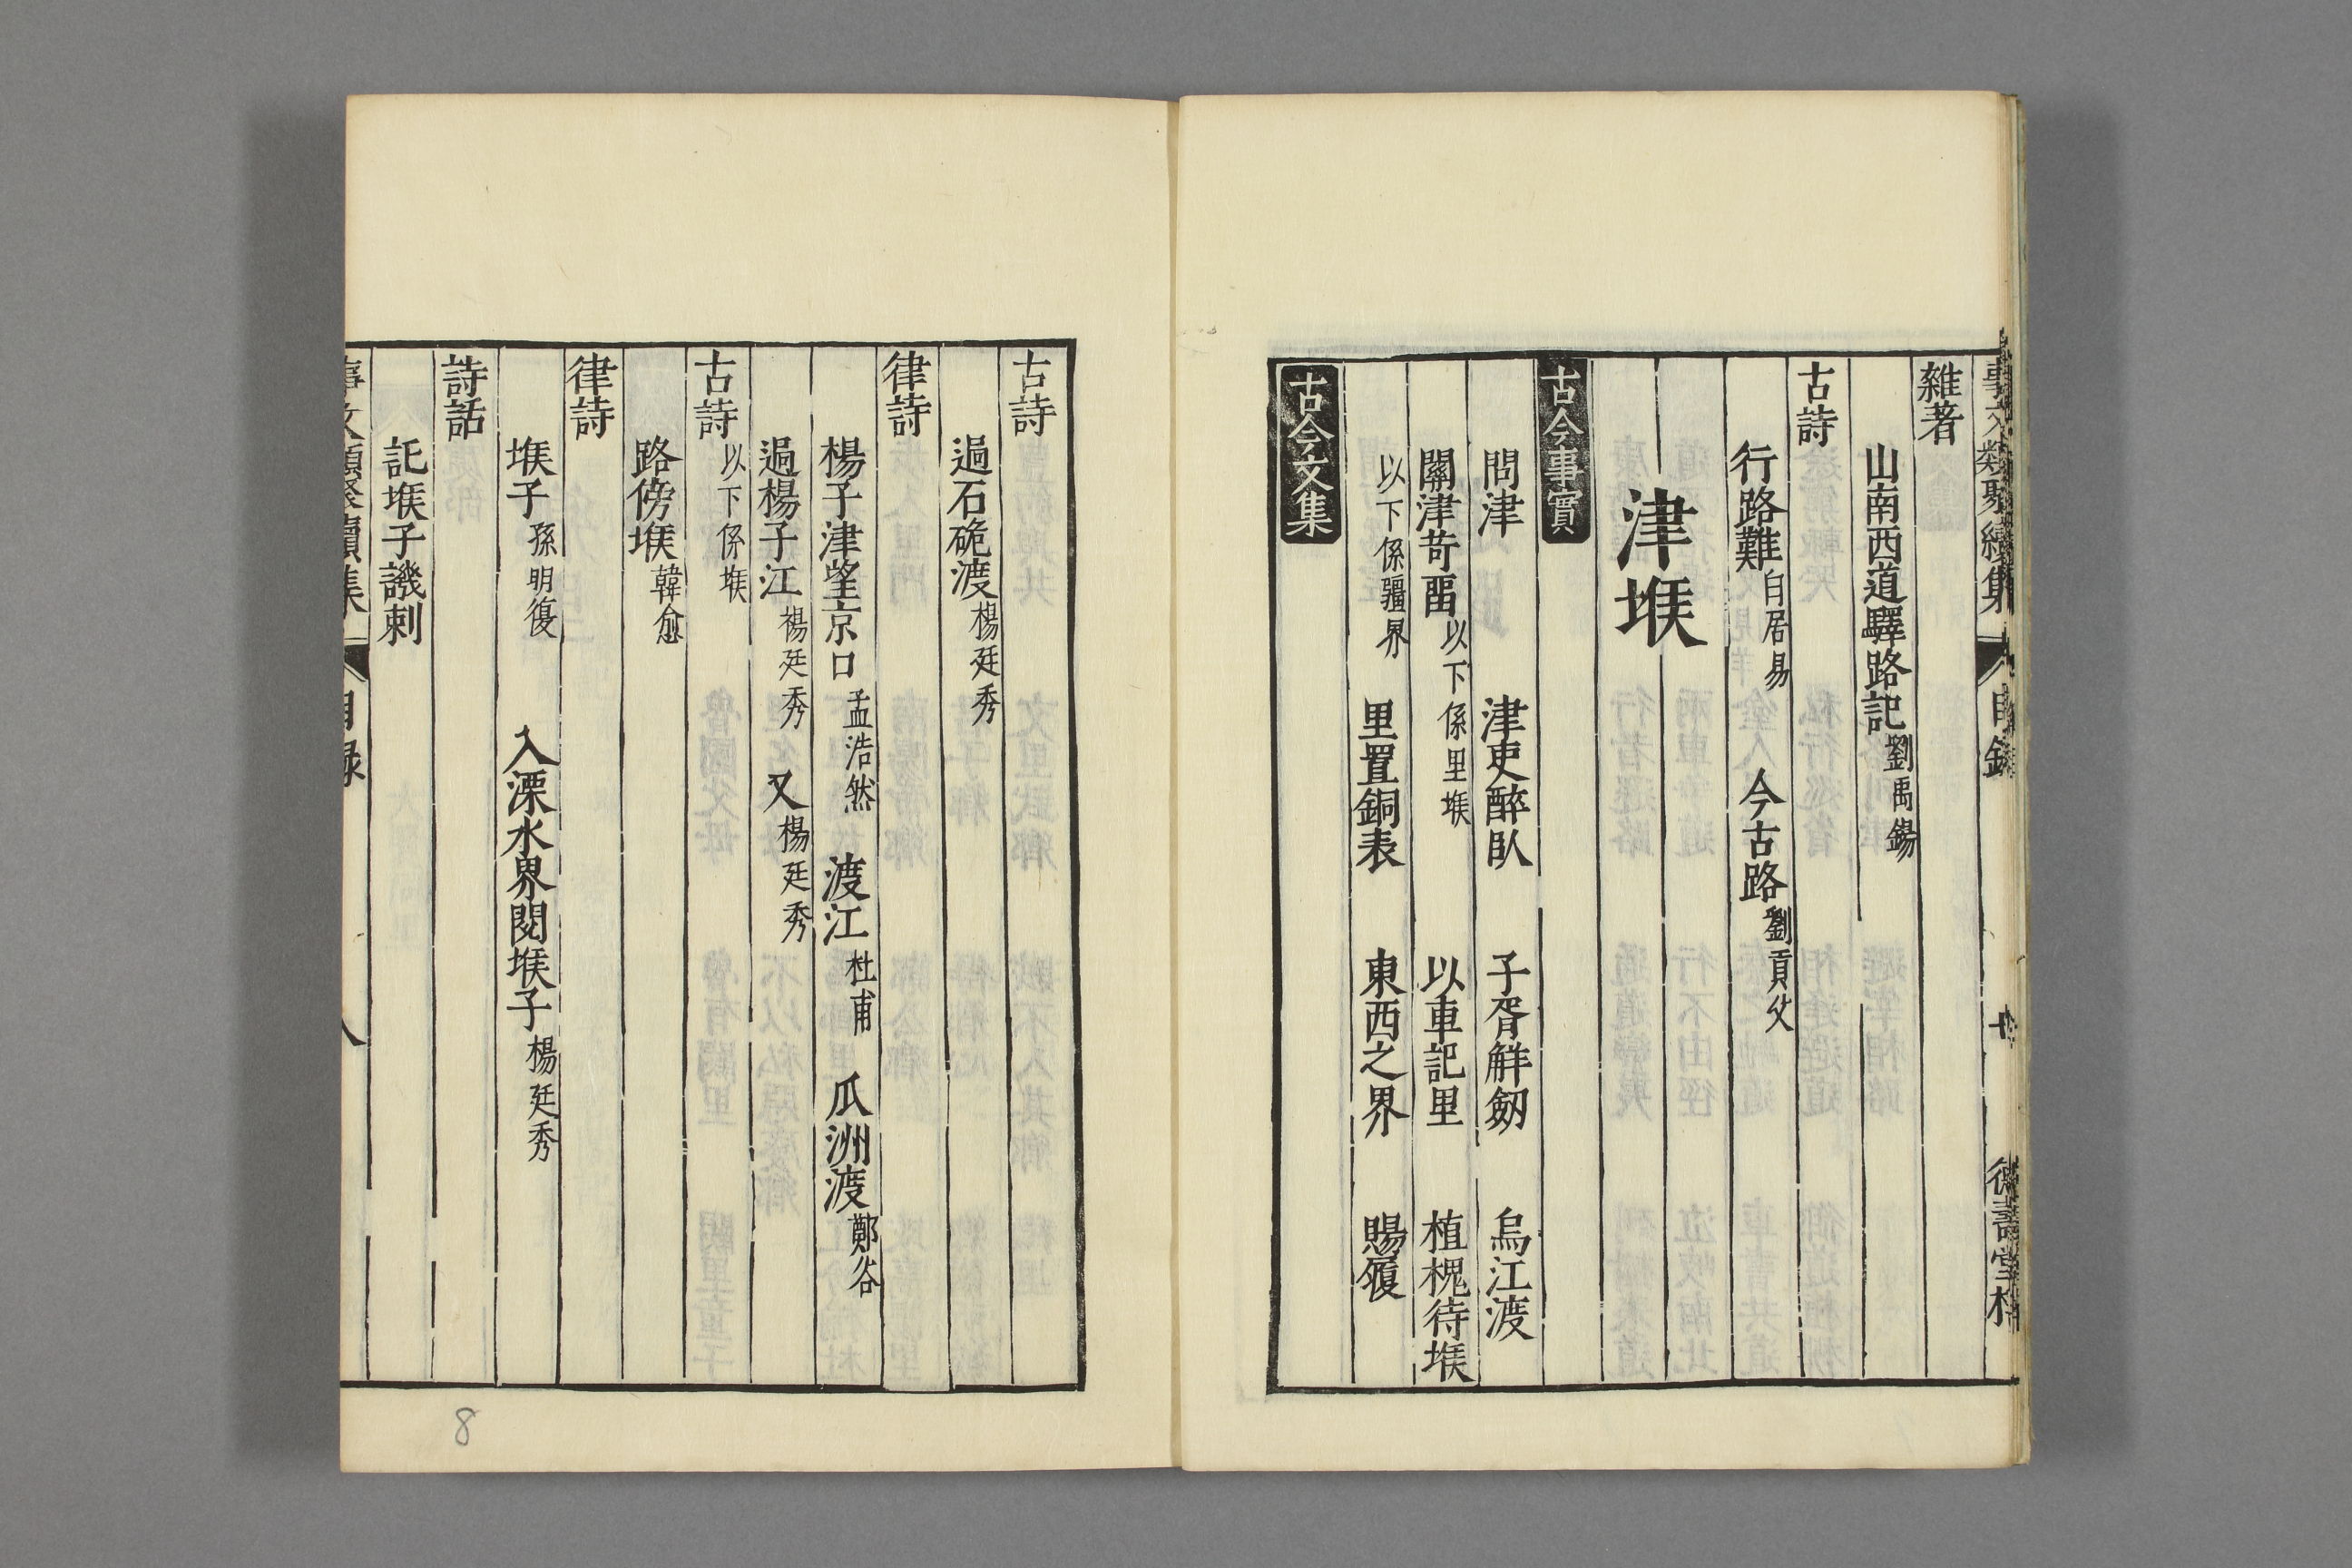 事文類聚續集 目錄 德壽堂梓
雜著
山南西道驛路記 劉禹錫
古詩
行路難 白居易 今古路 劉貢父
津堠
古今事實
問津 津吏醉臥 子胥解劒 烏江渡
關津苛畱 以下係里堠 以車記里 植槐待堠
以下係疆界 里置銅表 東西之界 賜履
古今文集
古詩
過石硊渡 楊廷秀
律詩
楊子津望京口 孟浩然 渡江 杜甫 瓜洲渡 鄭谷
過楊子江 楊廷秀 又 楊廷秀
古詩 以下係堠
路傍堠 韓愈
律詩
堠子 孫明復 入溧水界閱堠子 楊廷秀
詩話
託堠子譏刺
事文類聚續集 目錄 八
8